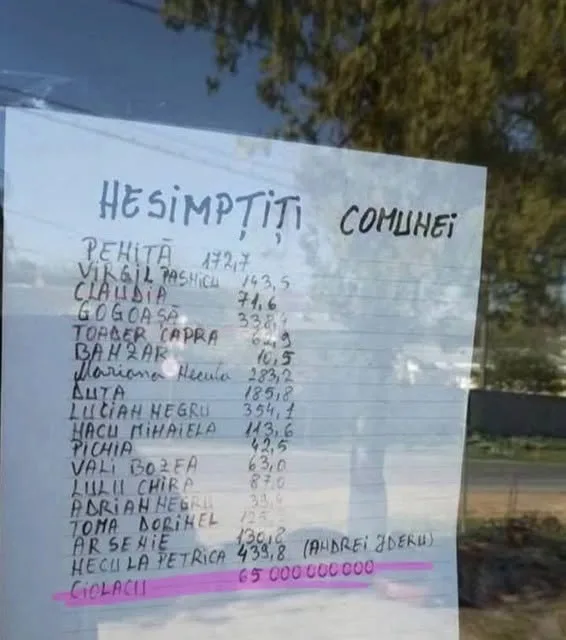 NESIMPȚIȚI COMUNEI
PENIȚĂ 172,7
VIRGIL PASNICU 143,5
CLAUDIA 71,6
GOGOAȘĂ
TOADER CAPRA 62,9
BANZAR 10,5
Mariana Necula 283,2
DUTA 185,8
LUCIAN NEGRU 354,1
NACU MIHAELA 113,6
PICHIA 42,5
VALI BOZEA 63,0
LULU CHIRA 87,0
ADRIAN NEGRU
TOMA DORINEL
ARSENIE 130,8
NECULA PETRICA 439,8 (ANDREI JDERU)
CIOLACU 65 000 000 000